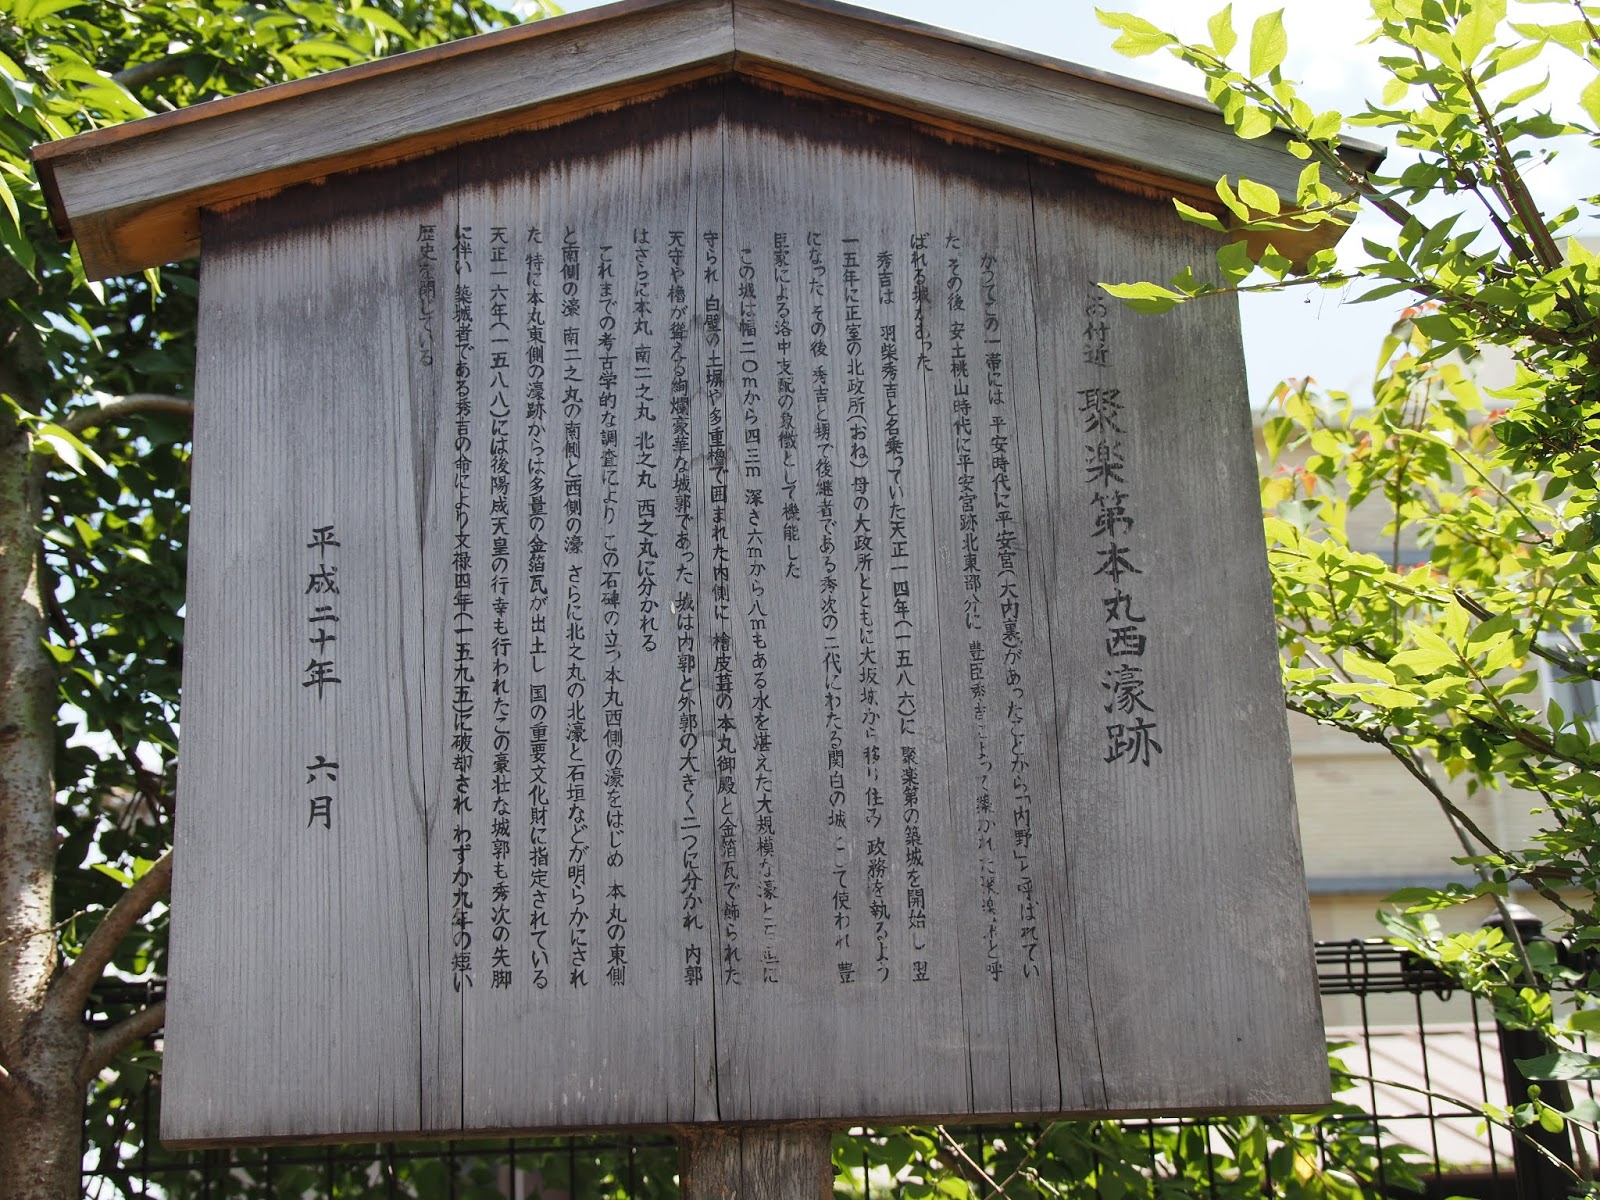 此付近 聚楽第本丸西濠跡
かつてこの一帯には 平安時代に平安宮(大内裏)があったことから「内野」と呼ばれてい
た その後 安土桃山時代に平安宮跡北東部分に 豊臣秀吉によって築かれた聚楽第と呼
ばれる城があった
秀吉は 羽柴秀吉と名乗っていた天正一四年(一五八六)に 聚楽第の築城を開始し 翌
一五年に正室の北政所(おね)母の大政所とともに大坂城から移り住み 政務を執るよう
になった その後 秀吉と甥で後継者である秀次の二代にわたる関白の城として使われ 豊
臣家による洛中支配の象徴として機能した
この城は幅二〇mから四三m 深さ六mから八mもある水を湛えた大規模な濠と石垣に
守られ 白壁の土塀や多重櫓で囲まれた内側に 檜皮葺の本丸御殿と金箔瓦で飾られた
天守や櫓が聳える絢爛豪華な城郭であった 城は内郭と外郭の大きく二つに分かれ 内郭
はさらに本丸 南二之丸 北之丸 西之丸に分かれる
これまでの考古学的な調査により この石碑の立つ本丸西側の濠をはじめ 本丸の東側
と南側の濠 南二之丸の南側と西側の濠 さらに北之丸の北濠と石垣などが明らかにされ
た 特に本丸東側の濠跡からは多量の金箔瓦が出土し 国の重要文化財に指定されている
天正一六年(一五八八)には後陽成天皇の行幸も行われたこの豪壮な城郭も秀次の失脚
に伴い 築城者である秀吉の命により文禄四年(一五九五)に破却され わずか九年の短い
歴史を閉じている
平成二十年 六月